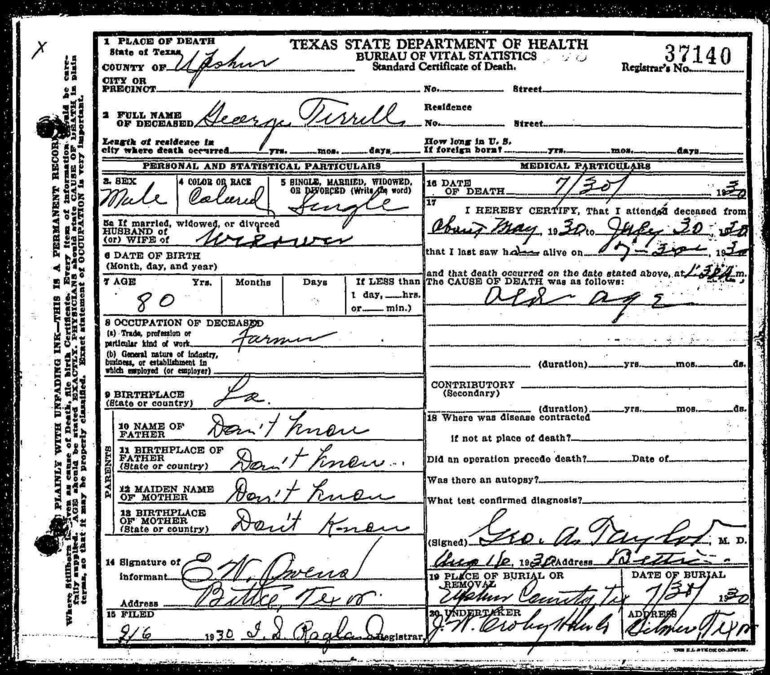 X
1 PLACE OF DEATH
State of Texas
COUNTY OF Upshur
CITY OR
PRECINCT
TEXAS STATE DEPARTMENT OF HEALTH
BUREAU OF VITAL STATISTICS
Standard Certificate of Death.
37140
Registrar's No.
No. Street
2 FULL NAME
OF DECEASED George Tirrell
Residence
No. Street
Length of residence in
city where death occurred yrs. mos. days
How long in U. S.
If foreign born? yrs. mos. days
PERSONAL AND STATISTICAL PARTICULARS
3. SEX
Male
4 COLOR OR RACE
Colored
5 SINGLE, MARRIED, WIDOWED,
OR DIVORCED (Write the word)
Single
5a If married, widowed, or divorced
HUSBAND OF
(or) WIFE of Widower
6 DATE OF BIRTH
(Month, day, and year)
7 AGE Yrs. Months Days If LESS than
80 1 day, hrs.
or min.)
8 OCCUPATION OF DECEASED
(a) Trade, profession or
particular kind of work Farmer
(b) General nature of industry,
business, or establishment in
which employed (or employer)
9 BIRTHPLACE La.
(State or country)
PARENTS
10 NAME OF
FATHER Don't Know
11 BIRTHPLACE OF
FATHER Don't Know
(State or country)
12 MAIDEN NAME
OF MOTHER Don't Know
13 BIRTHPLACE
OF MOTHER Don't Know
(State or country)
14 Signature of
informant E W Owens
Address Bettie, Tex
15 FILED
1930 Ragland Registrar
MEDICAL PARTICULARS
16 DATE
OF DEATH 7/30/ 1930
17
I HEREBY CERTIFY, That I attended deceased from
About May 1930 to July 30 1930
that I last saw h alive on 7-30 1930
and that death occurred on the date stated above, at m.
The CAUSE OF DEATH was as follows:
old age
(duration) yrs. mos. ds.
CONTRIBUTORY
(Secondary)
(duration) yrs. mos. ds.
18 Where was disease contracted
if not at place of death?
Did an operation precede death? Date of
Was there an autopsy?
What test confirmed diagnosis?
(Signed) Geo. A. Taylor, M. D.
Aug 16, 1930 Address Bettie
19 PLACE OF BURIAL OR
REMOVAL
Upshur County, Tex
DATE OF BURIAL
7/30/ 1930
20 UNDERTAKER
J. W. Croley
ADDRESS
Gilmer, Tex
PLAINLY WITH UNFADING INK—THIS IS A PERMANENT RECORD